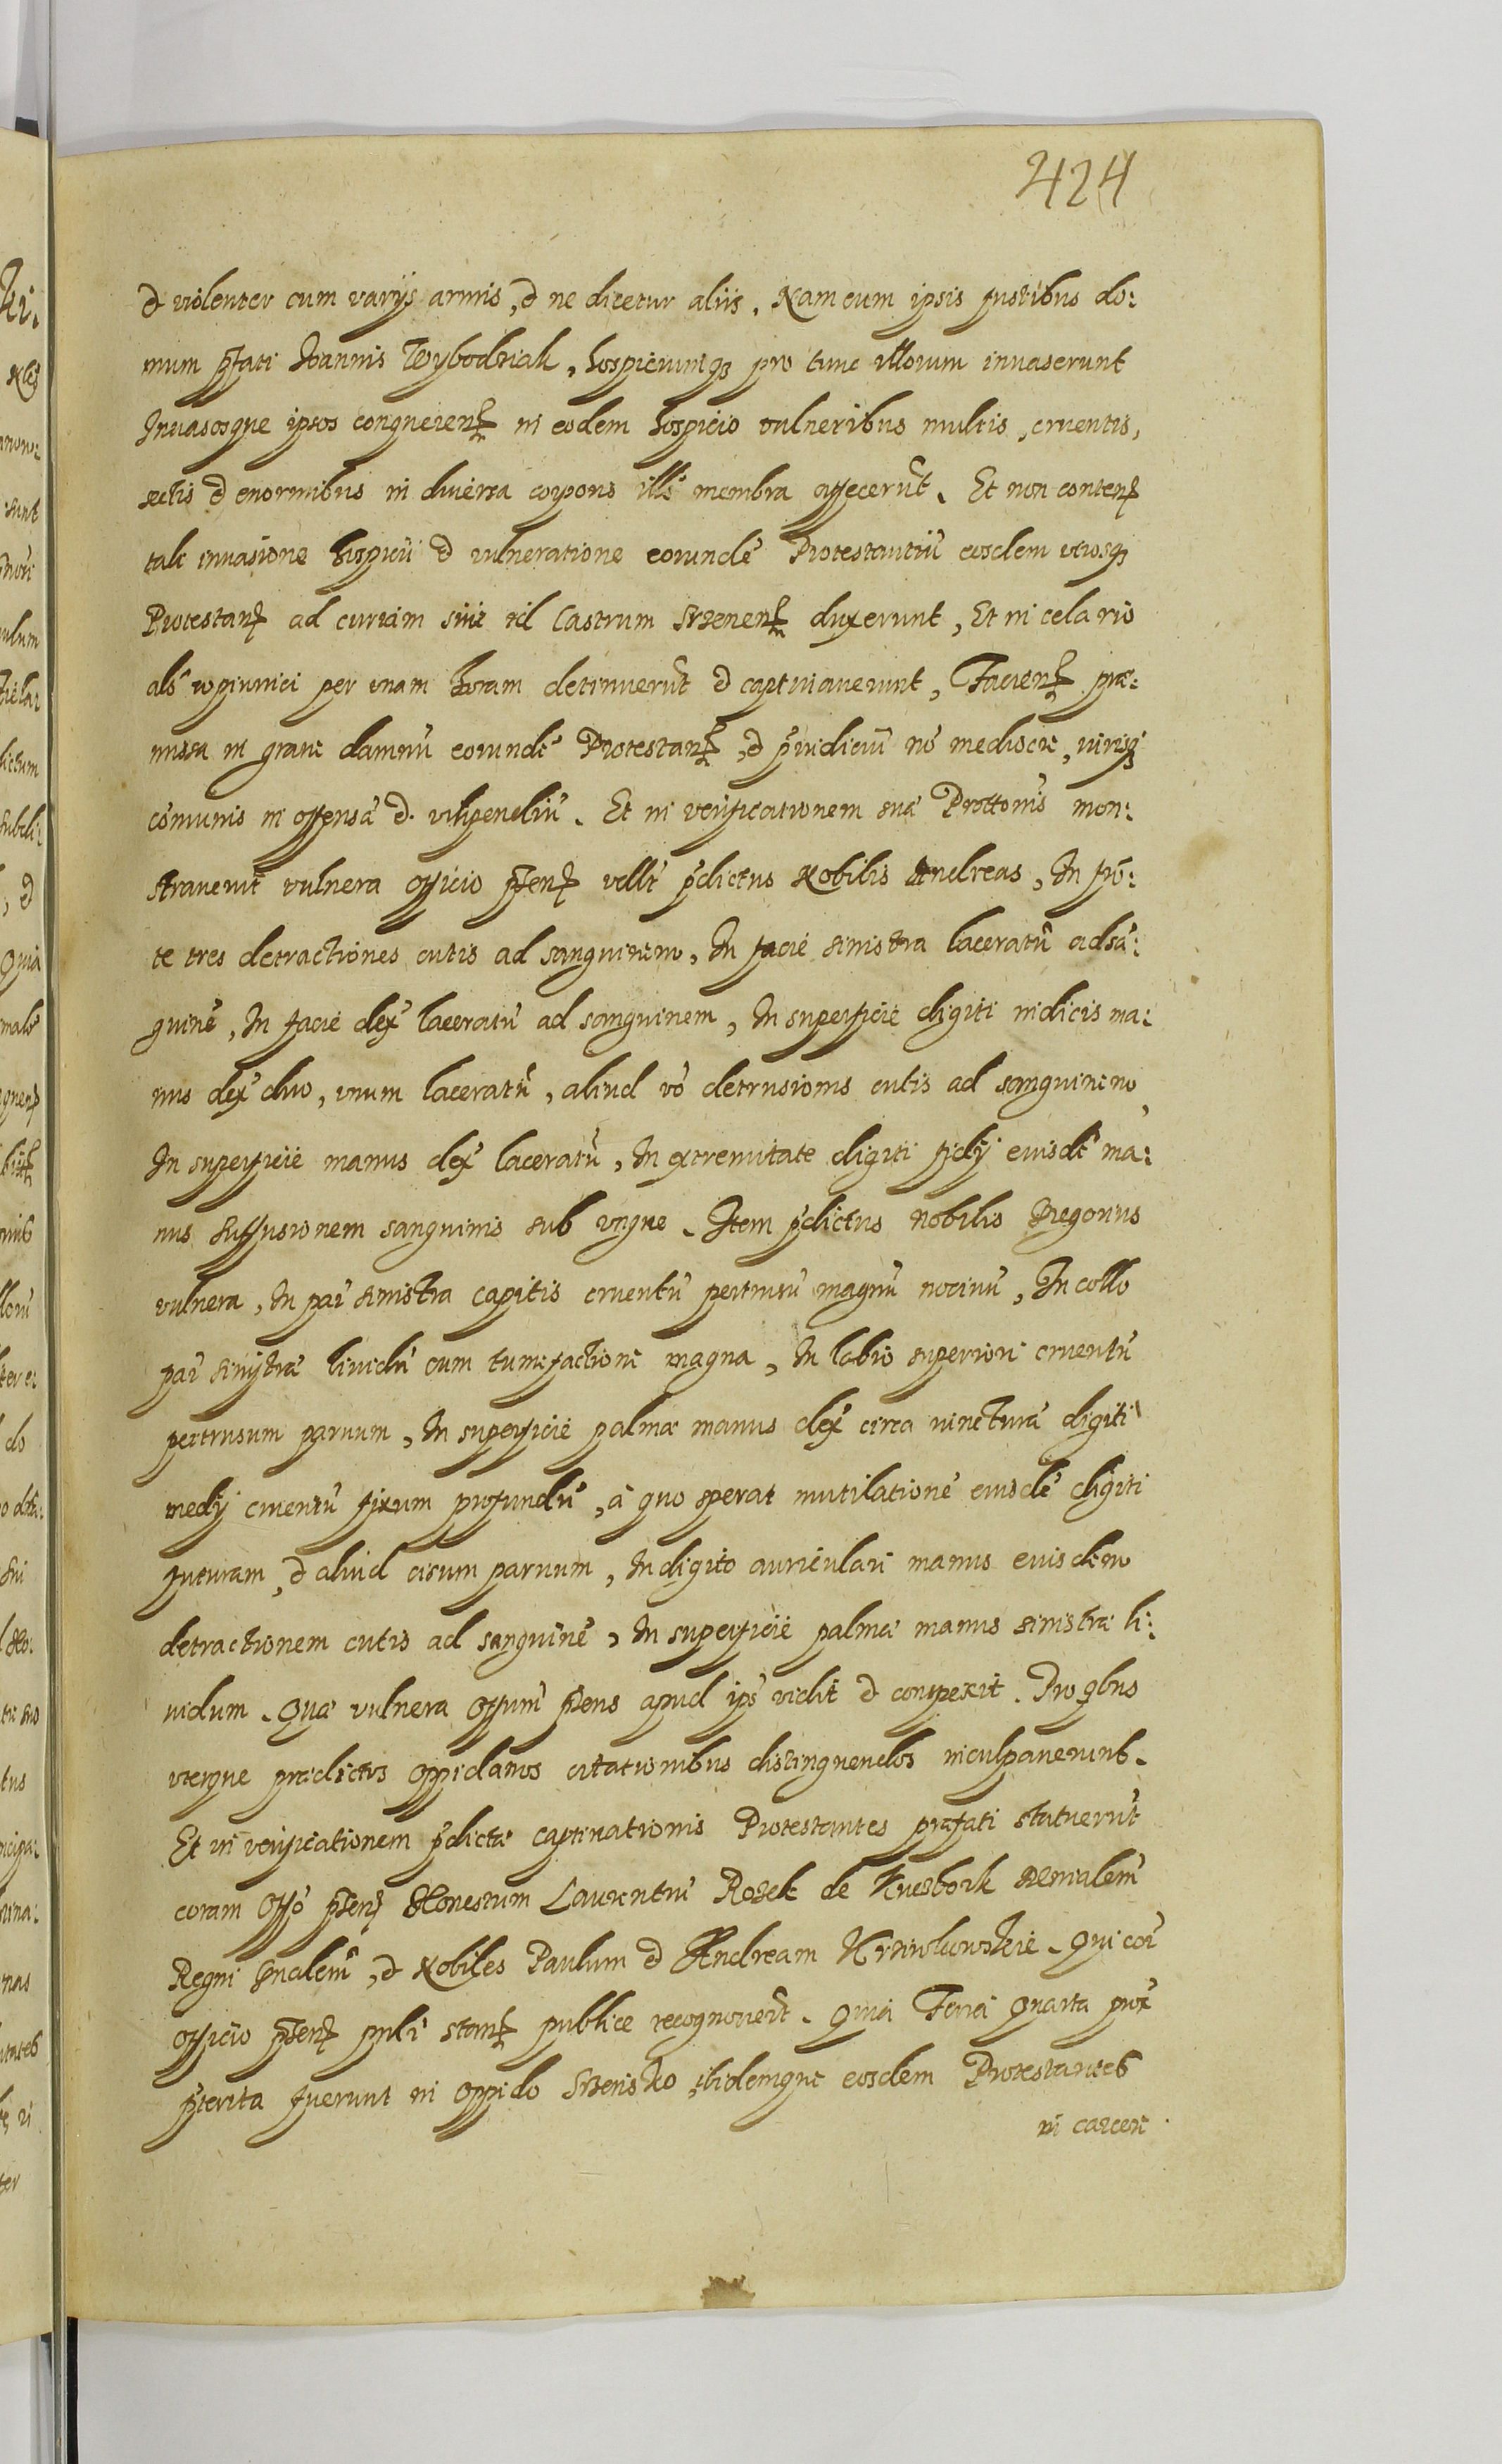 424
& violenter cum varijs armis, & ne dicetur aliis. Nam cum ipsis fustibus do:
mum pfati Joannis Wybodziak, hospiciumqȝ pro tunc illorum invaserunt
Invasosque ipsos conqueren in eodem hospicio vulneribus multis, cruentis,
sectis & enormibus in diversa corporis illo membra affecerut. Et non conten
tali invasione hospicii & vulneratione eorunde Protestantiu eosdem utrosqȝ
Protestan ad curiam sive ad Castrum Srzenen duxerunt, Et in celario
als w piwnici per unam horam detinuerut & captivaverunt, Facien præ:
missa in grave damnu eorunde Protestan, & pjudiciu no mediocre, iurisqȝ
comunis in offensa & vilipendiu. Et in verificationem sua Prottonis mon:
straverut vulnera officio pñten vellt pdictus Nobilis Andreas, In fro:
te tres detractiones cutis ad sanguinem, In facie sinistra laceratu ad sa:
guine, In facie dex laceratu ad sanguinem, In superficie digiti indicis ma:
nus dex duo, unum laceratu, aliud vo detrusionis cutis ad sanguinem
In superficie manus dex laceratu, In extremitate digiti fidij eiusde ma:
nus suffusionem sanguinis sub ungue. Item pdictus nobilis Gregorius
vulnera, In par sinistra capitis cruentu pertusu magnu nocivu, In collo
par sinistra lividu cum tumefactione magna, In labio superiori cruentu
pertrusum parvum, In superficie palmæ manus dex circa iunctura digiti
medij cruentu fixum profundu, à quo sperat mutilatione eiusde digiti
futuram, & aliud cisum parvum, In digito auriculari manus eiusdem
detractionem cutis ad sanguine, In superficie palmæ manus sinistræ li:
vidum. Quæ vulnera Offium pñtens apud ips vidit & conspexit. Pro qbus
uterque prædictos oppidanos citationibus distinguendos inculpaverunt.
Et in verificationem pdictæ captivationis Protestantes præfati statuerut
coram Offo pñten Honestum Laurentiu Rozek de Kuczbork Mrialem
Regni gnalem, & Nobiles Paulum & Andream Krzywkowskie. Qui cor
officio pñten psnli stan publice recognoverut. Quia Feria quarta prox
pterita fuerunt in oppido Srzensko, ibidemque eosdem Protestantes
in carcere